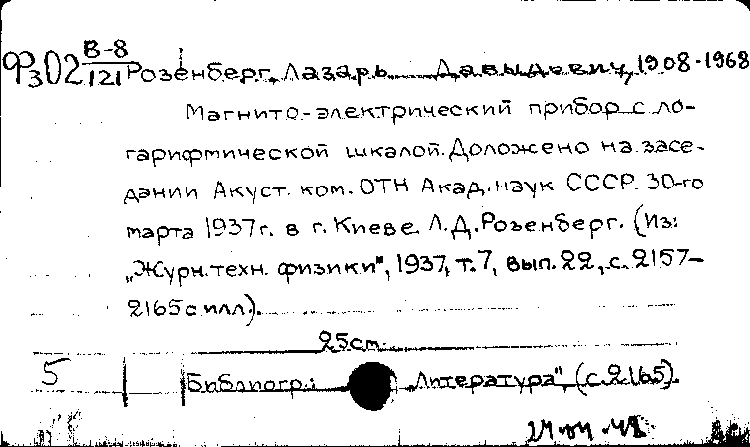 Фз02 В-8/121 Розенберг, Лазарь Давыдевич, 1908-1968
Магнито-электрический прибор с ло-
гарифмической шкалой. Доложено на засе-
дании Акуст. ком. ОТН Акад. наук СССР 30-го
марта 1937 г. в г. Киеве. Л.Д. Розенберг. (Из:
„Журн. техн. физики", 1937, т. 7, вып. 22, с. 2157-
2165 с илл.).
25 см.
5 Библиогр.: „Литература", (с. 2165).